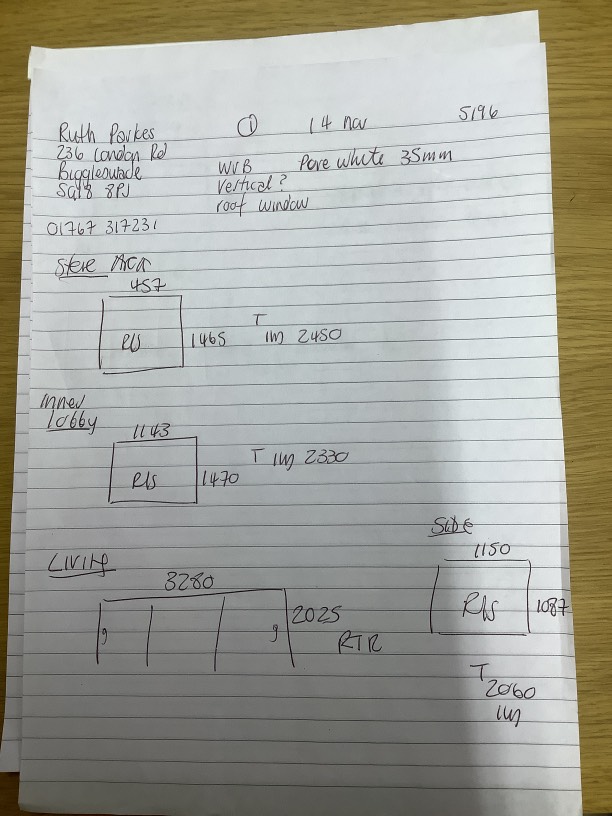 Ruth Parkes ① 14 nov 5196
236 London Rd
Biggleswade WVB Pure white 35mm
SG18 8PJ Vertical?
roof window
01767 317231
457
R/S 1465 T 1m 2450
inner
lobby
1143
R/S 1470 T 1m 2330
Living
3280
2025
RTR
Side
1150
R/S 1087
T
2060
1m